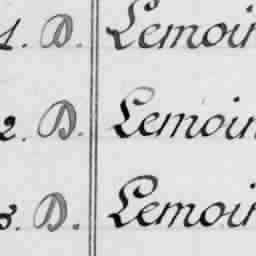 1. D. Lemoin
2. D. Lemoin
3. D. Lemoin